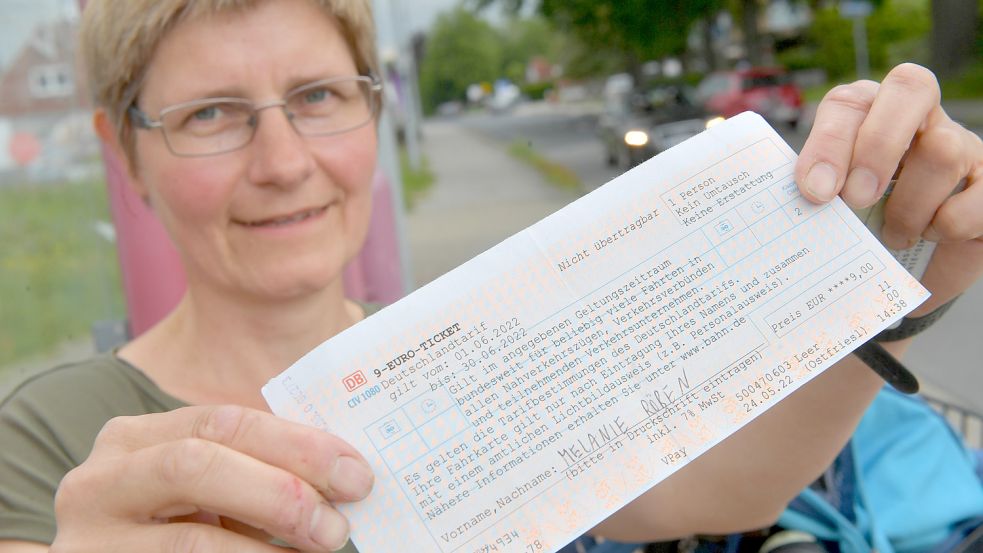 DB 9-EURO-TICKET
CIV 1080 Deutschlandtarif
gilt vom: 01.06.2022
bis: 30.06.2022
Nicht übertragbar
1 Person
Kein Umtausch
Keine Erstattung
2
Gilt im angegebenen Geltungszeitraum
bundesweit für beliebig viele Fahrten in
allen Nahverkehrszügen, Verkehrsverbünden
und teilnehmenden Verkehrsunternehmen.
Es gelten die Tarifbestimmungen des Deutschlandtarifs.
Ihre Fahrkarte gilt nur nach Eintragung ihres Namens und zusammen
mit einem amtlichen Lichtbildausweis (z.B. Personalausweis).
Nähere Informationen erhalten Sie unter www.bahn.de
Preis EUR ****9,00
Vorname,Nachname: MELANIE DÖREN
(bitte in Druckschrift eintragen)
inkl. 7% MwSt
11
00
500470603 Leer (Ostfriesl)
24.05.22 14:38
vPay
74934
78